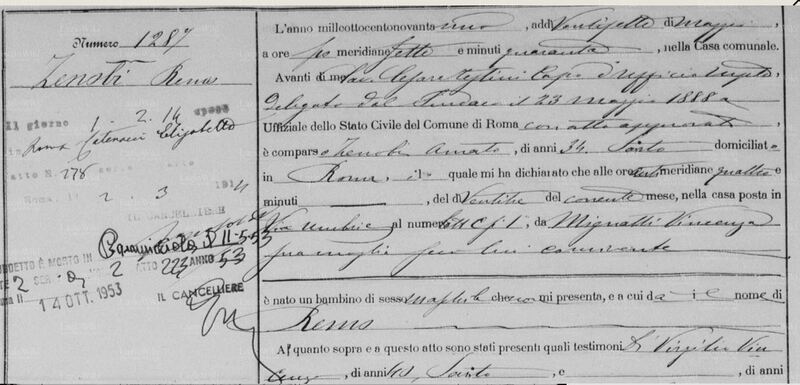 Numero 1287
Zenobi Remo
Il giorno 1. 2. 14 sposò
Roma Catenacci Elisabetta
278
2 3 191
IL CANCELLIERE
11-5-53
DETTO È MORTO IN
2 SER. 2 ATTO 223 ANNO 53
14 OTT. 1953
IL CANCELLIERE
L'anno milleottocentonovanta uno, addì Ventisette di Maggio,
a ore pomeridiane sette e minuti quaranta, nella Casa comunale.
Avanti di me Cesare Capo d'Ufficio
delegato dal Sindaco il 23 maggio 1888
Uffiziale dello Stato Civile del Comune di Roma con atto approvato
è comparso Zenobi Amato, di anni 34, Sarto domiciliato
in Roma, il quale mi ha dichiarato che alle ore meridiane quattro e
minuti, del dì Ventitre del corrente mese, nella casa posta in
Via Umbria al numero, da Mignatti Vincenza
sua moglie seco lui convivente
è nato un bambino di sesso maschile che non mi presenta, e a cui dà il nome di
Remo
A quanto sopra e a questo atto sono stati presenti quali testimoni Di Virgilio
, di anni, Sarto, e, di anni